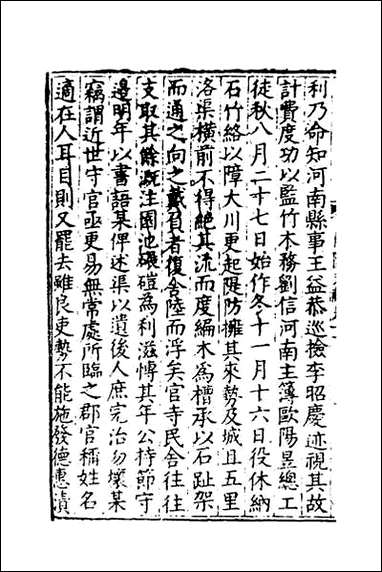 利乃命知河南縣事王益恭巡撿李昭慶迹視其故
計費度功以監竹木務劉信河南主簿歐陽昱總工
徒秋八月二十七日始作冬十一月十六日役休納
石竹絡以障大川更起隄防擁其來勢及城且五里
洛渠橫前不得絕其流而度編木為槽承以石趾架
而通之向之戴負者復舍陸而浮矣官寺民舍往往
支取其餘既注園池碾磑為利滋博其年公持節守
邊明年以書語某俾述渠以遺後人庶完治勿壞某
竊謂近世守官亟更易無常處所臨之郡官稱姓名
適在人耳目則又罷去雖良吏勢不能施發德惠漬